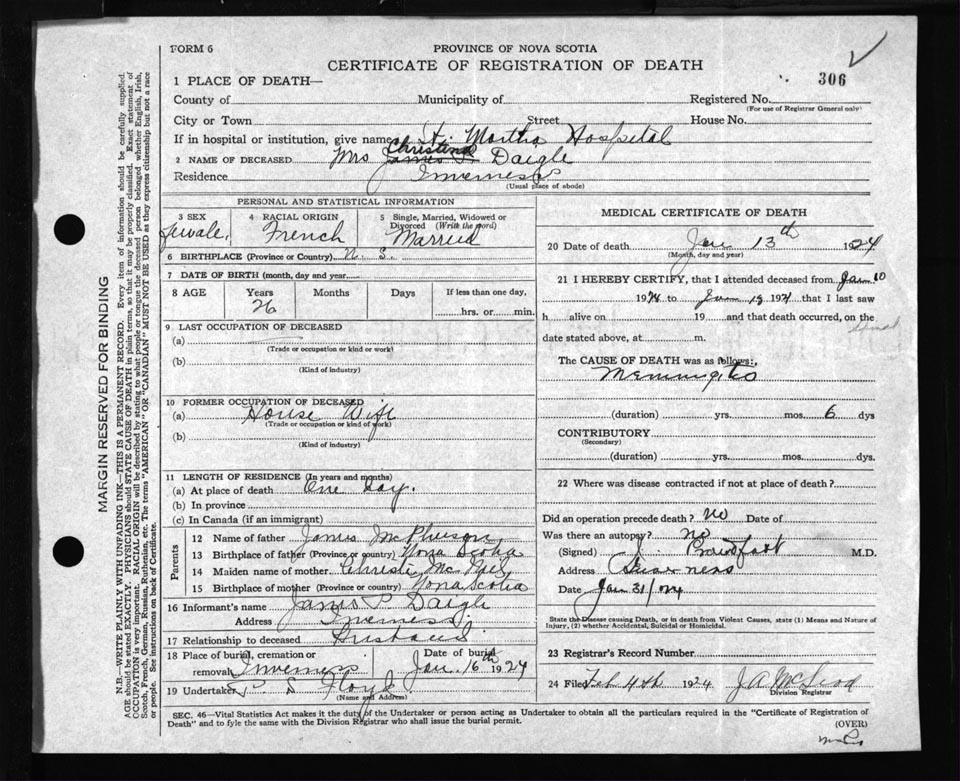 FORM 6
PROVINCE OF NOVA SCOTIA
CERTIFICATE OF REGISTRATION OF DEATH
306
1 PLACE OF DEATH—
County of Municipality of Registered No.
(For use of Registrar General only)
City or Town Street House No.
If in hospital or institution, give name St. Martha Hospital
Christina
2 NAME OF DECEASED Mrs James P. Daigle
Residence Inverness
(Usual place of abode)
PERSONAL AND STATISTICAL INFORMATION
3 SEX 4 RACIAL ORIGIN 5 Single, Married, Widowed or Divorced (Write the word)
female, French Married
6 BIRTHPLACE (Province or Country) N. S.
7 DATE OF BIRTH (month, day and year)
8 AGE Years Months Days If less than one day,
26 hrs. or min.
9 LAST OCCUPATION OF DECEASED
(a)
(Trade or occupation or kind or work)
(b)
(Kind of industry)
10 FORMER OCCUPATION OF DECEASED
(a) House Wife
(Trade or occupation or kind of work)
(b)
(Kind of industry)
11 LENGTH OF RESIDENCE (In years and months)
(a) At place of death One day.
(b) In province
(c) In Canada (if an immigrant)
Parents
12 Name of father James McPherson
13 Birthplace of father (Province or country) Nova Scotia
14 Maiden name of mother Christie McNeil
15 Birthplace of mother (Province or country) Nova Scotia
16 Informant's name James P Daigle
Address Inverness
17 Relationship to deceased Husband
18 Place of burial, cremation or removal Inverness Date of burial Jan. 16th 1924
19 Undertaker S Floyd
(Name and Address)
MEDICAL CERTIFICATE OF DEATH
20 Date of death Jan 13th 1924
(Month, day and year)
21 I HEREBY CERTIFY, that I attended deceased from Jan 10
1924 to 1924 that I last saw
h alive on 19 and that death occurred, on the
date stated above, at m.
The CAUSE OF DEATH was as follows:
Meningitis
(duration) yrs. mos. 6 dys
CONTRIBUTORY
(Secondary)
(duration) yrs. mos. dys.
22 Where was disease contracted if not at place of death?
Did an operation precede death? no Date of
Was there an autopsy? no
(Signed) J. Proudfoot M.D.
Address Inverness
Date Jan 31/24
State the Disease causing Death, or in death from Violent Causes, state (1) Means and Nature of
Injury, (2) whether Accidental, Suicidal or Homicidal.
23 Registrar's Record Number
24 Filed Feb 4th 1924 J A McLeod
Division Registrar
SEC. 46—Vital Statistics Act makes it the duty of the Undertaker or person acting as Undertaker to obtain all the particulars required in the "Certificate of Registration of
Death" and to fyle the same with the Division Registrar who shall issue the burial permit. (OVER)
MARGIN RESERVED FOR BINDING
N.B.—WRITE PLAINLY WITH UNFADING INK—THIS IS A PERMANENT RECORD. Every item of information should be carefully supplied.
AGE should be stated EXACTLY. PHYSICIANS should STATE CAUSE OF DEATH in plain terms, so that it may be properly classified. Exact statement of
OCCUPATION is very important. RACIAL ORIGIN will be described by stating to what people or tongue the deceased person belonged whether English, Irish,
Scotch, French, German, Russian, Ruthenian, etc. The terms "AMERICAN" OR "CANADIAN" MUST NOT BE USED as they express citizenship but not a race
or people. See instructions on back of Certificate.